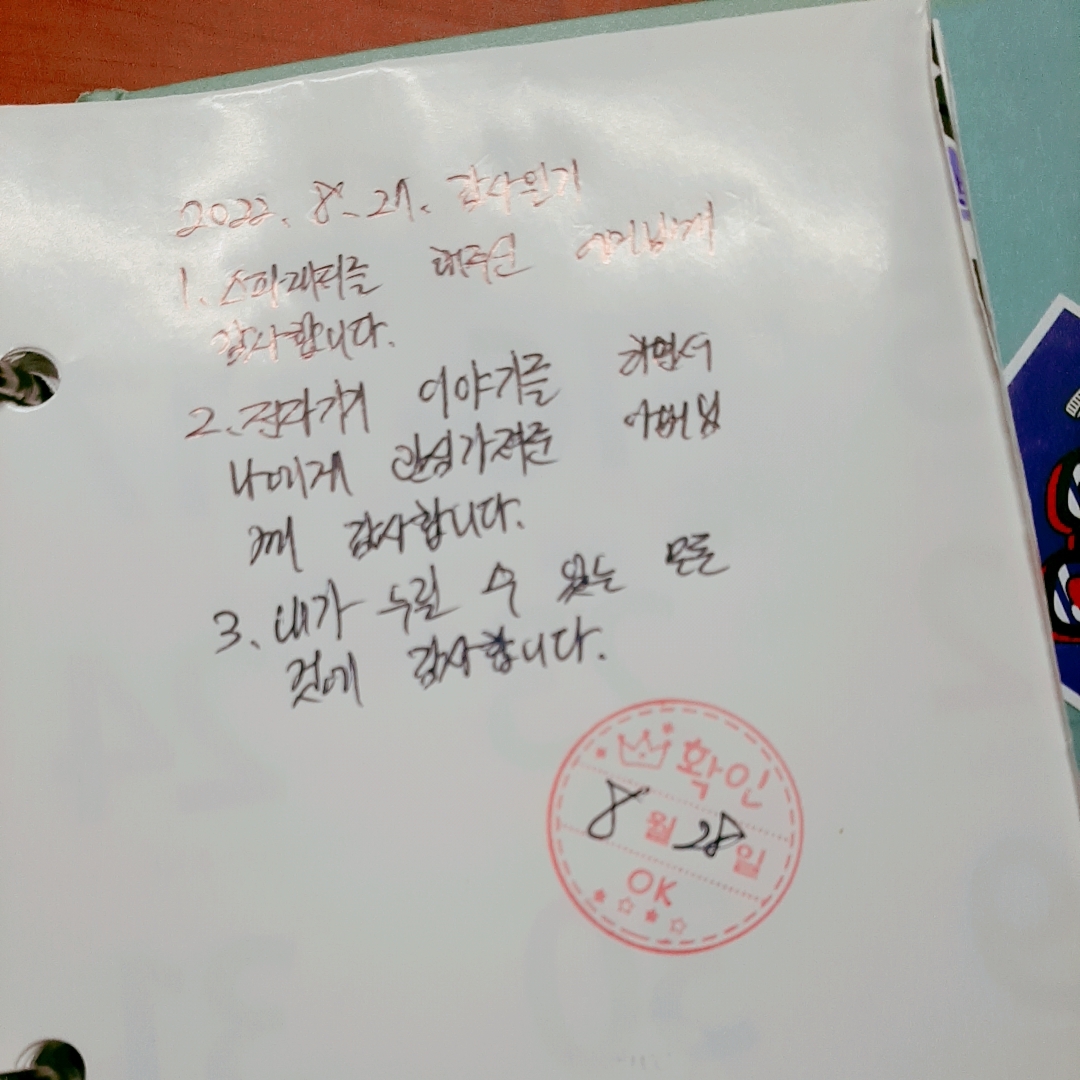 2022. 8. 27. 감사일기
1. 스파게티를 해주신 어머님께
감사합니다.
2. 전자기기 이야기를 하면서
나에게 관심가져준 아버님
께 감사합니다.
3. 내가 누릴 수 있는 모든
것에 감사합니다.
확인
8월 28일
OK